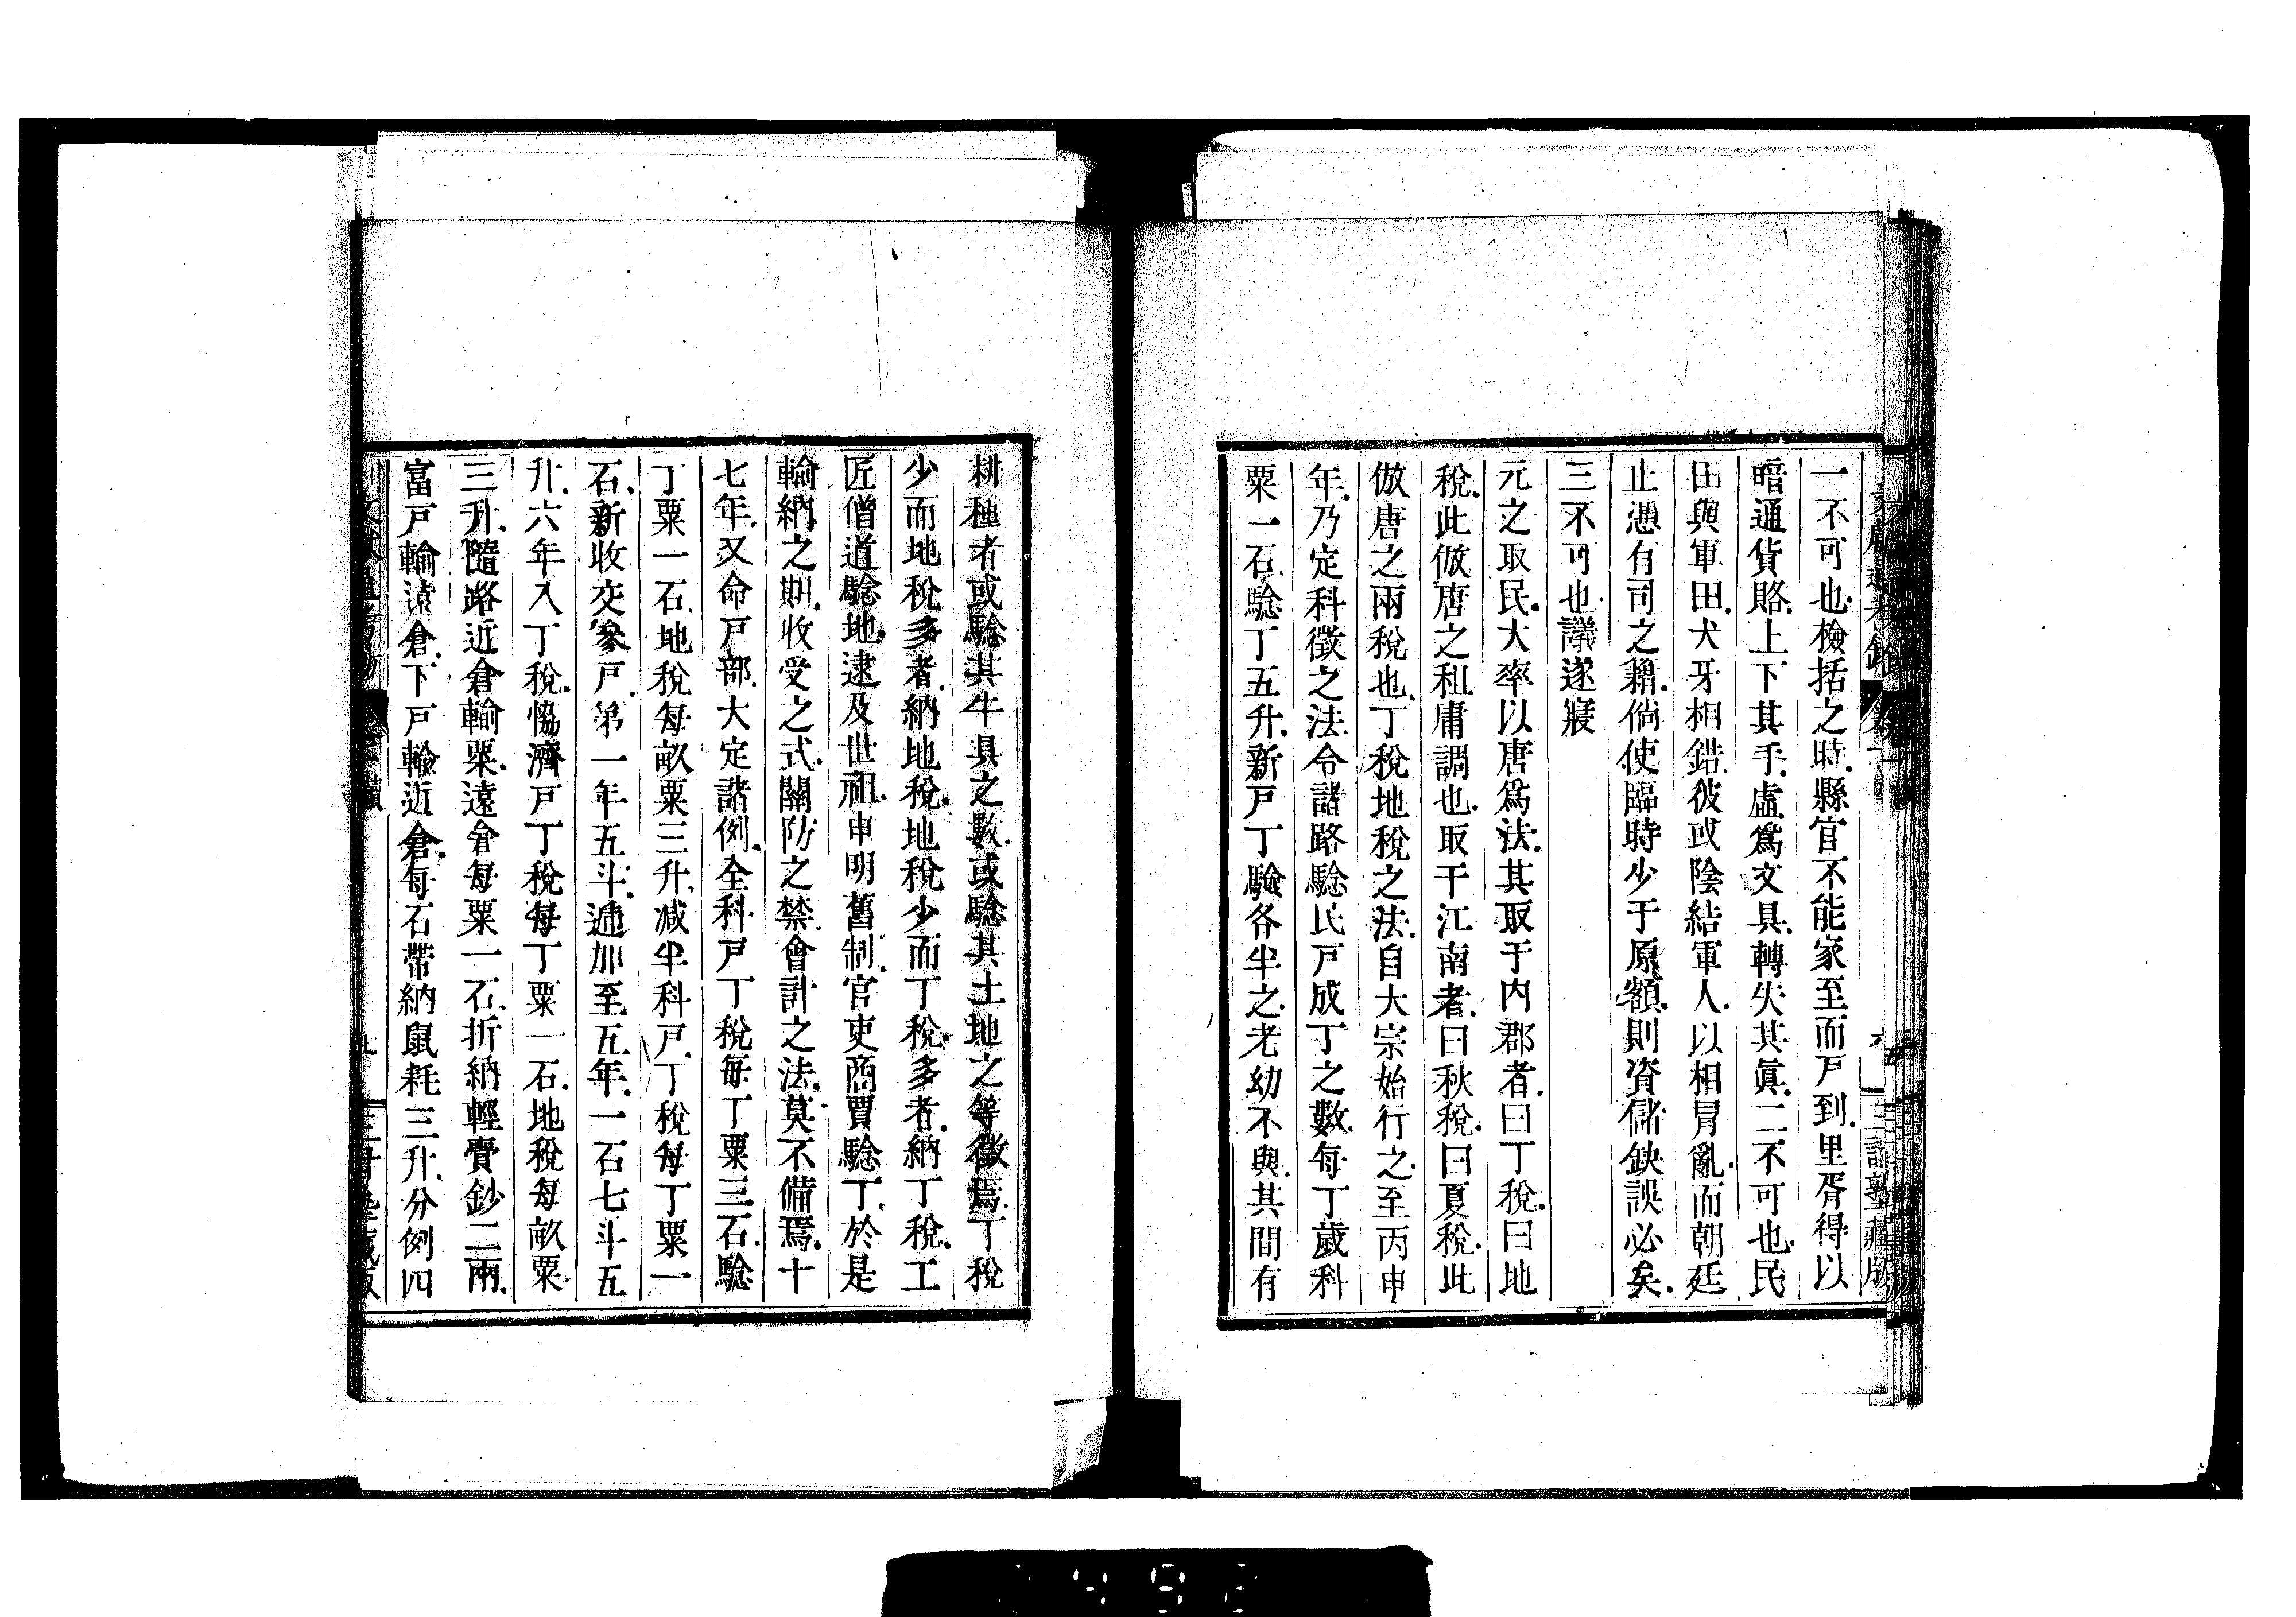 一不可也檢括之時縣官不能家至而戸到里胥得以
暗通貨賂上下其手虛爲文具轉失其眞二不可也民
田與軍田犬牙相錯彼或陰結軍人以相冐亂而朝廷
止憑有司之籍倘使臨時少于原額則資儲缺誤必矣
三不可也議遂寢
元之取民大率以唐爲法其取于内郡者曰丁稅曰地
稅此倣唐之租庸調也取于江南者曰秋稅曰夏稅此
倣唐之兩稅也丁稅地稅之法自太宗始行之至丙申
年乃定科徵之法令諸路驗民戸成丁之數每丁歲科
粟一石驗丁五升新戸丁驗各半之老幼不與其間有
耕種者或驗其牛具之數或驗其土地之等徵焉丁稅
少而地稅多者納地稅地稅少而丁稅多者納丁稅工
匠僧道驗地逮及世祖申明舊制官吏商賈驗丁於是
輸納之期收受之式關防之禁會計之法莫不備焉十
七年又命戸部大定諸例全科戸丁稅每丁粟三石驗
丁粟一石地稅每畝粟三升减半科戸丁稅每丁粟一
石新收交參戸第一年五斗遞加至五年一石七斗五
升六年入丁稅恊濟戸丁稅每丁粟一石地稅每畝粟
三升隨路近倉輸粟遠倉每粟一石折納輕賫鈔二兩
富戸輸遠倉下戸輸近倉每石帶納鼠耗三升分例四